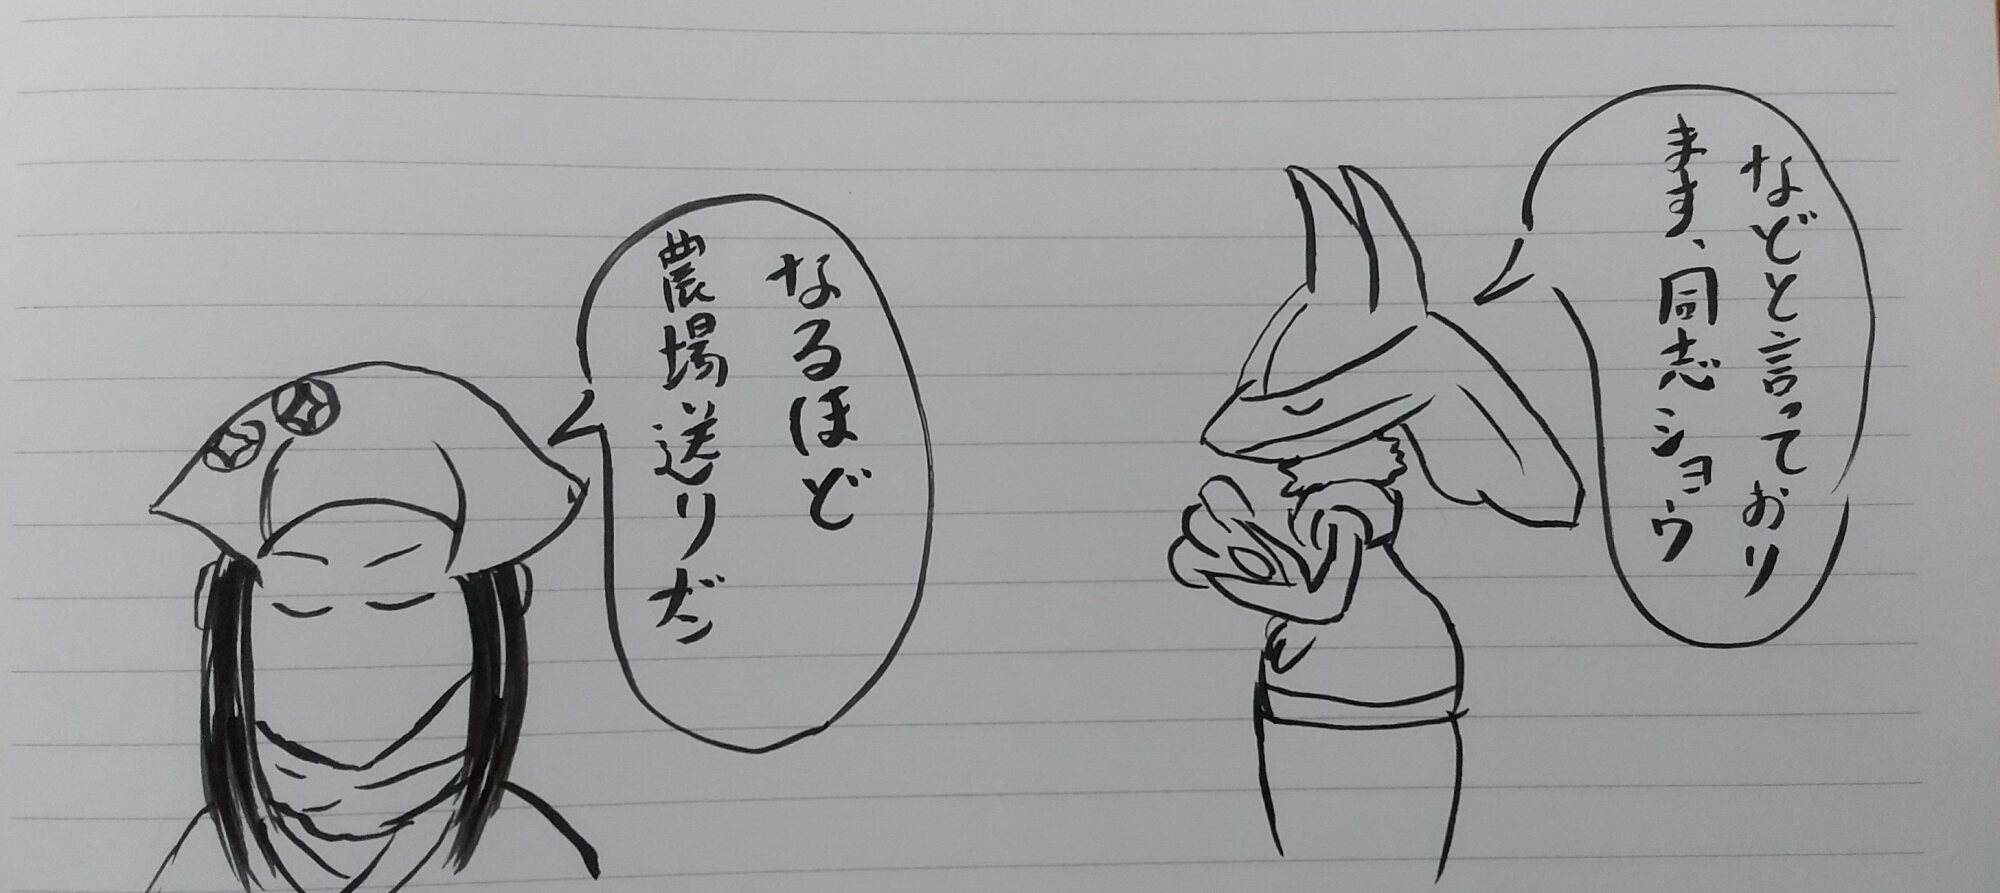 などと言っており
ます、同志ショウ
なるほど
農場送りダ